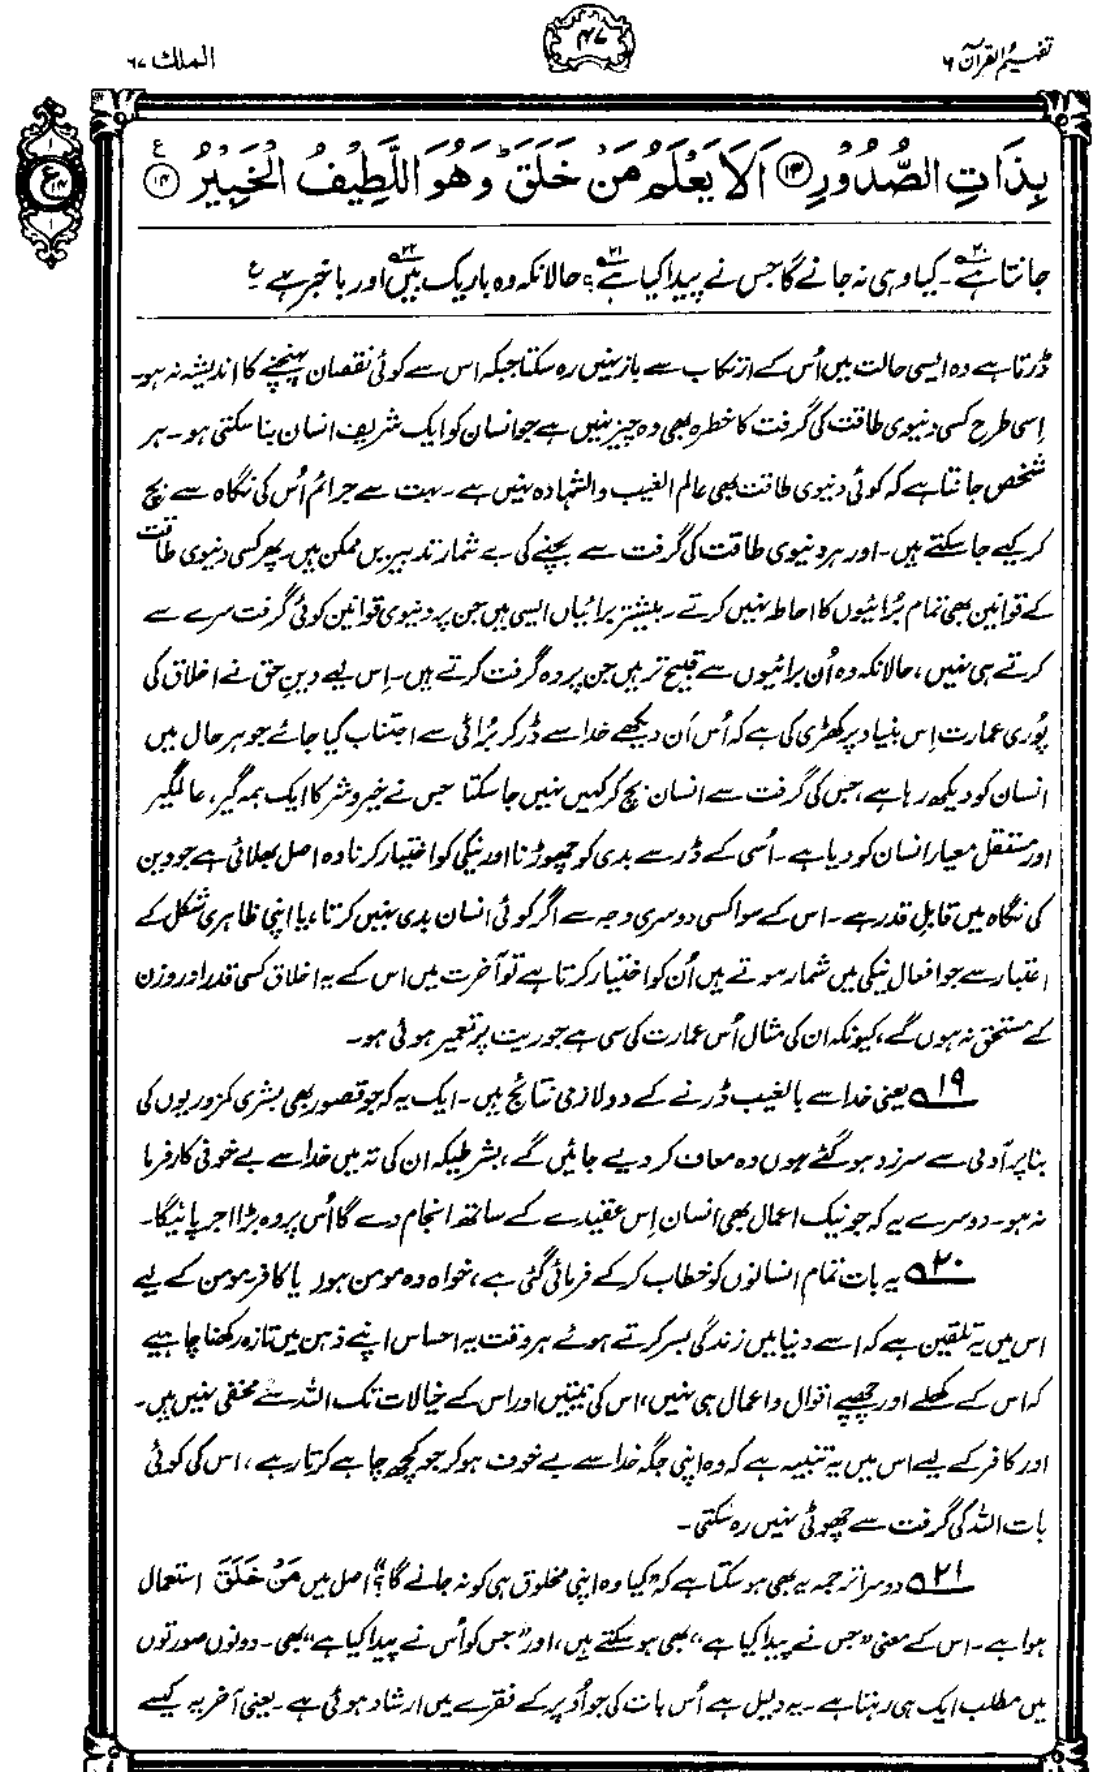 تفہیم القرآن ۶
۴۷
الملک ۶۷
بِذَاتِ الصُّدُوْرِ ﴿۱۳﴾ اَلَا يَعْلَمُ مَنْ خَلَقَ ؕ وَهُوَ اللَّطِيْفُ الْخَبِيْرُ ﴿۱۴﴾ ع
جانتا ہے۲۰؎۔ کیا وہی نہ جانے گا جس نے پیدا کیا ہے۲۱؎؟ حالانکہ وہ باریک بیں۲۲؎ اور باخبر ہے ع
ڈرتا ہے وہ ایسی حالت میں اُس کے ارتکاب سے باز نہیں رہ سکتا جبکہ اس سے کوئی نقصان پہنچنے کا اندیشہ نہ ہو۔
اِسی طرح کسی دنیوی طاقت کی گرفت کا خطرہ بھی وہ چیز نہیں ہے جو انسان کو ایک شریف انسان بنا سکتی ہو۔ ہر
شخص جانتا ہے کہ کوئی دنیوی طاقت بھی عالم الغیب والشہادہ نہیں ہے۔ بہت سے جرائم اُس کی نگاہ سے بچ
کر کیے جا سکتے ہیں۔ اور ہر دنیوی طاقت کی گرفت سے بچنے کی بے شمار تدبیریں ممکن ہیں۔ پھر کسی دنیوی طاقت
کے قوانین بھی تمام بُرائیوں کا احاطہ نہیں کرتے۔ بیشتر برائیاں ایسی ہیں جن پر دنیوی قوانین کوئی گرفت سرے سے
کرتے ہی نہیں، حالانکہ وہ اُن برائیوں سے قبیح تر ہیں جن پر وہ گرفت کرتے ہیں۔ اِس لیے دینِ حق نے اخلاق کی
پُوری عمارت اِس بنیاد پر کھڑی کی ہے کہ اُس اَن دیکھے خدا سے ڈر کر بُرائی سے اجتناب کیا جائے جو ہر حال میں
انسان کو دیکھ رہا ہے، جس کی گرفت سے انسان بچ کر کہیں نہیں جا سکتا جس نے خیر و شر کا ایک ہمہ گیر، عالمگیر
اور مستقل معیار انسان کو دیا ہے۔ اُسی کے ڈر سے بدی کو چھوڑنا اور نیکی کو اختیار کرنا وہ اصل بھلائی ہے جو دین
کی نگاہ میں قابلِ قدر ہے۔ اس کے سوا کسی دوسری وجہ سے اگر کوئی انسان بدی نہیں کرتا، یا اپنی ظاہری شکل کے
اعتبار سے جو افعال نیکی میں شمار ہوتے ہیں اُن کو اختیار کرتا ہے تو آخرت میں اس کے یہ اخلاق کسی قدر اور وزن
کے مستحق نہ ہوں گے، کیونکہ ان کی مثال اُس عمارت کی سی ہے جو ریت پر تعمیر ہوئی ہو۔
۱۹؎ یعنی خدا سے بالغیب ڈرنے کے دو لازمی نتائج ہیں۔ ایک یہ کہ جو قصور بھی بشری کمزوریوں کی
بنا پر آدمی سے سرزد ہو گئے ہوں وہ معاف کر دیے جائیں گے، بشرطیکہ ان کی تہ میں خدا سے بے خوفی کارفرما
نہ ہو۔ دوسرے یہ کہ جو نیک اعمال بھی انسان اِس عقیدے کے ساتھ انجام دے گا اُس پر وہ بڑا اجر پائیگا۔
۲۰؎ یہ بات تمام انسانوں کو خطاب کرکے فرمائی گئی ہے، خواہ وہ مومن ہوں یا کافر۔ مومن کے لیے
اس میں یہ تلقین ہے کہ اسے دنیا میں زندگی بسر کرتے ہوئے ہر وقت یہ احساس اپنے ذہن میں تازہ رکھنا چاہیے
کہ اس کے کھلے اور چھپے اقوال و اعمال ہی نہیں، اس کی نیتیں اور اس کے خیالات تک اللہ سے مخفی نہیں ہیں۔
اور کافر کے لیے اس میں یہ تنبیہ ہے کہ وہ اپنی جگہ خدا سے بے خوف ہو کر جو کچھ چاہے کرتا رہے، اس کی کوئی
بات اللہ کی گرفت سے چھوٹی نہیں رہ سکتی۔
۲۱؎ دوسرا ترجمہ یہ بھی ہو سکتا ہے کہ ”کیا وہ اپنی مخلوق ہی کو نہ جانے گا؟“ اصل میں مَنْ خَلَقَ استعمال
ہوا ہے۔ اس کے معنی ”جس نے پیدا کیا ہے“ بھی ہو سکتے ہیں، اور ”جس کو اُس نے پیدا کیا ہے“ بھی۔ دونوں صورتوں
میں مطلب ایک ہی رہتا ہے۔ یہ دلیل ہے اُس بات کی جو اُوپر کے فقرے میں ارشاد ہوئی ہے۔ یعنی آخر یہ کیسے